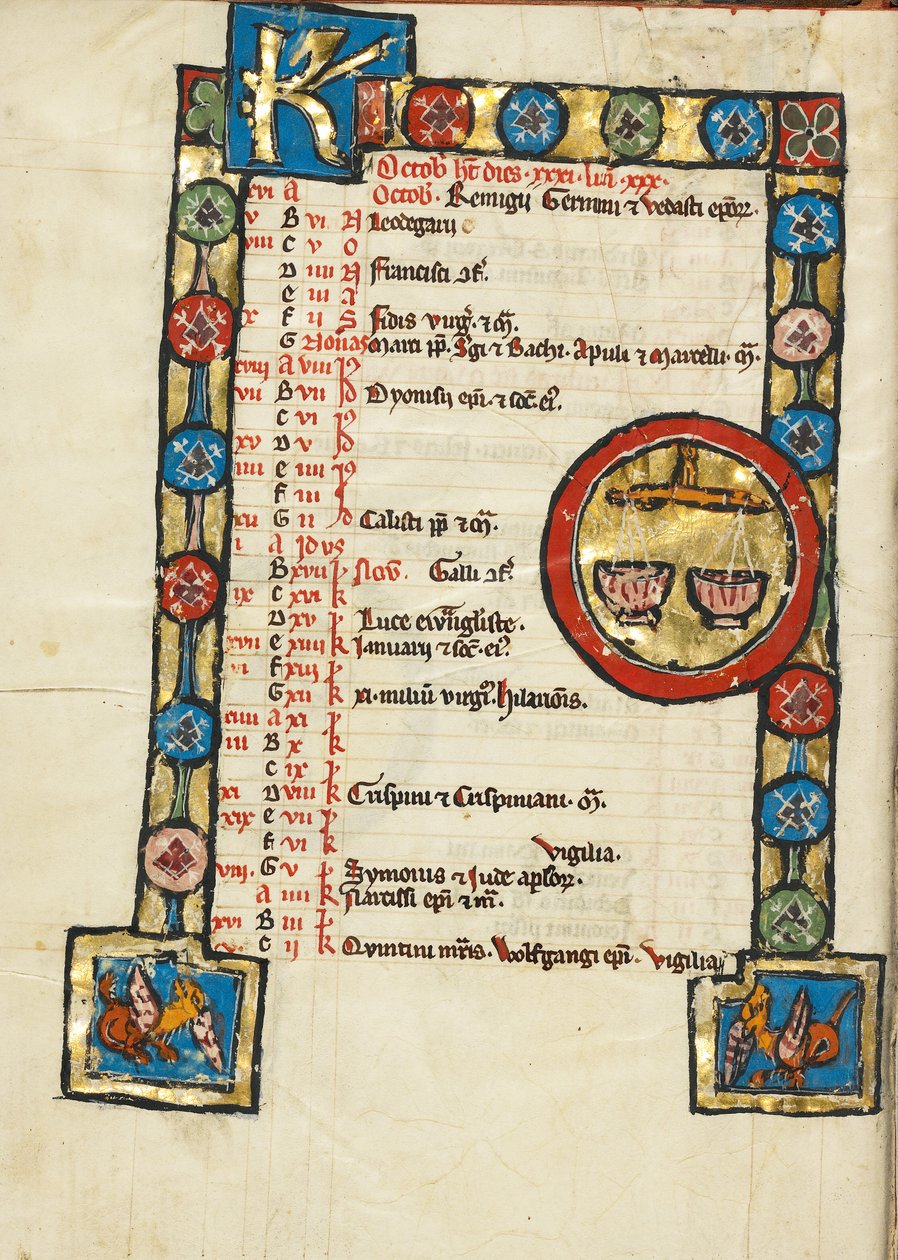 K
Octob' ht dies · xxxi · lun xxx ·
xvi A Octob'. Remigii Germani ⁊ vedasti epōr̄.
v B vi N Leodegarii
xiii C v O
D iiii N Francisci ōf'.
e iii A
x f ii S fidis virg'. ⁊ m̄.
G Nonas Marci pp̄. Sgi ⁊ Bachi. Apuli ⁊ Marcelli. m̄.
xviii A viii Id
vii B vii Id Dyonisij ep̄i. ⁊ soc̄. ei'.
C vi Id
xv D v Id
iiii e iiii Id
f iii I
xii G ii d Calisti pp̄ ⁊ m̄.
i A Idus
B xvii k Nov'. Galli ōf'.
ix C xvi k
D xv k Luce ewāgliste.
xvii e xiiii k Ianuarij ⁊ soc̄. ei'.
vi f xiii k
G xii k xi. miliū virgı̄. hilariōis.
xiiii A xi k
iii B x k
C ix k
xi D viii k Crispini ⁊ Crispiniani. m̄.
xix e vii k
f vi k vigilia.
viii. G v k Symonis ⁊ Iude ap̄lor̄.
A iiii k Narcissi ep̄i ⁊ m̄.
xvi B iii k
v. C ii k Quintini mr̄is. Wolfgangi ep̄i. vigilia